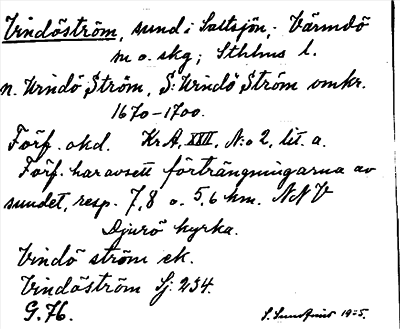 Vindöström, sund i Saltsjön; Värmdö
m o. skg; Sthlms l.
n. Windö Ström, S: Windö Ström omkr.
1670-1700.
Förf. okd. KrA, XXII, N:o 2, lit. a.
Förf. har avsett förträngningarna av
sundet, resp. 7,8 o. 5,6 km. NNV
Djurö kyrka.
Vindö ström ek.
Vindöström Sj: 234.
G. 76. S. Lundqvist 1925.